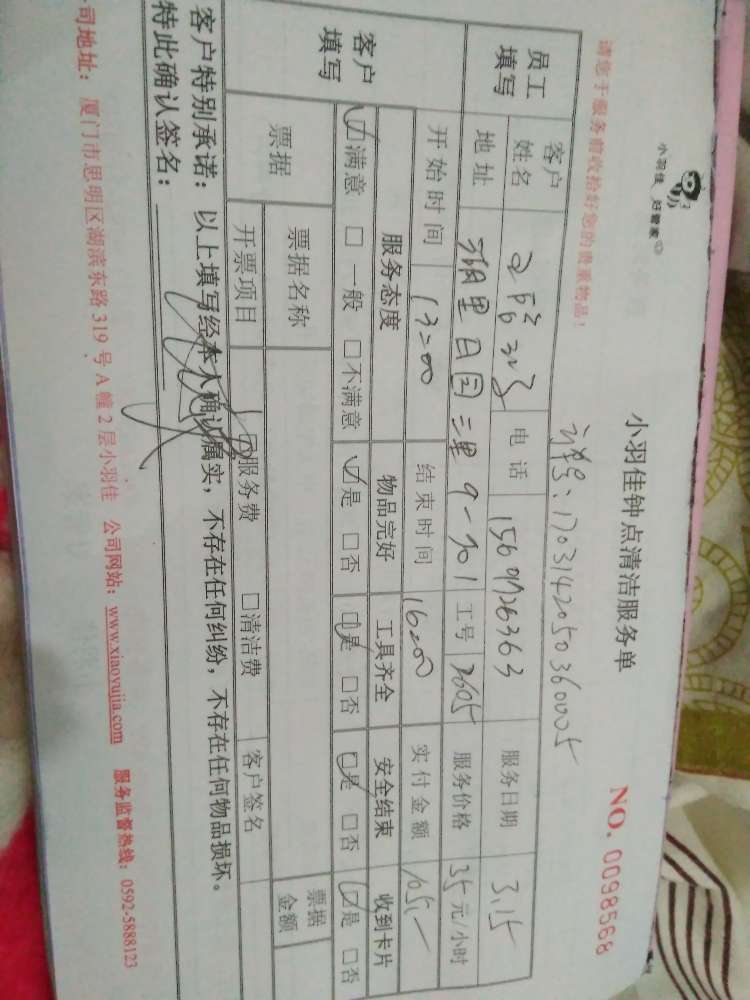 小羽佳 好管家
小羽佳钟点清洁服务单
NO. 0098568
请您于服务前收拾好您的贵重物品!
订单号:1703142050360005
员工填写 客户姓名 电话 15697726363 服务日期 3.15
地址 9-901 工号 2605 服务价格 35元/小时
客户填写 开始时间 13:00 结束时间 16:00 实付金额 105.-
服务态度 物品完好 工具齐全 安全结束 收到卡片
☑满意 □一般 □不满意 ☑是 □否 ☑是 □否 ☑是 □否 ☑是 □否
票据 票据名称 票据金额
开票项目 ☑服务费 □清洁费 客户签名
客户特别承诺:以上填写经本人确认属实,不存在任何纠纷,不存在任何物品损坏。
特此确认签名:
司地址:厦门市思明区湖滨东路319号A幢2层小羽佳 公司网站:www.xiaoyujia.com 服务监督热线:0592-5888123